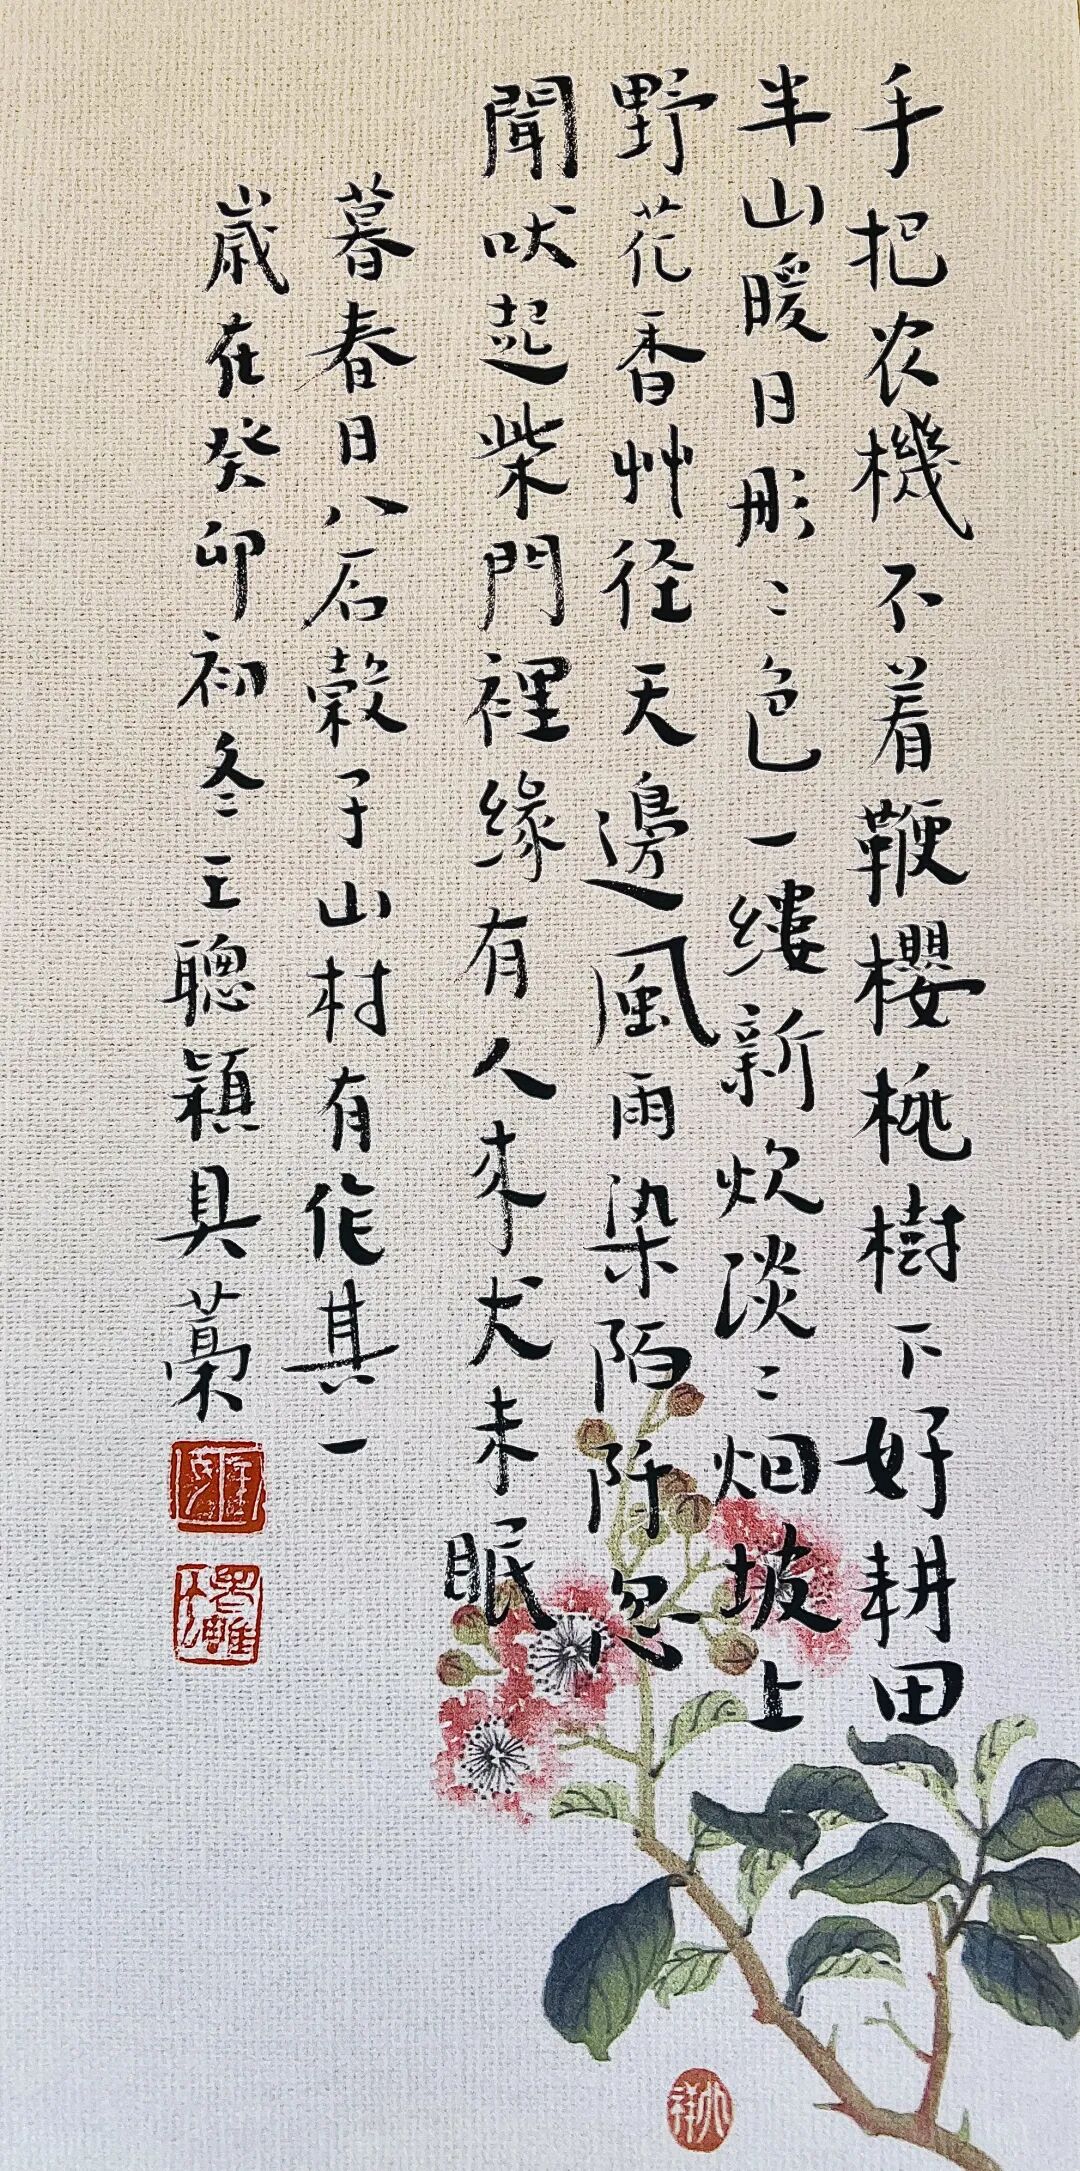 手把农機不着鞭櫻桃樹下好耕田
半山暖日彤〻色一缕新炊淡〻烟坡上
野花香艸径天邊風雨染陌阡忽
聞吠起柴門裡緣有人来犬未眠
暮春日八石穀子山村有作其一
歲在癸卯初冬王聰穎具藁